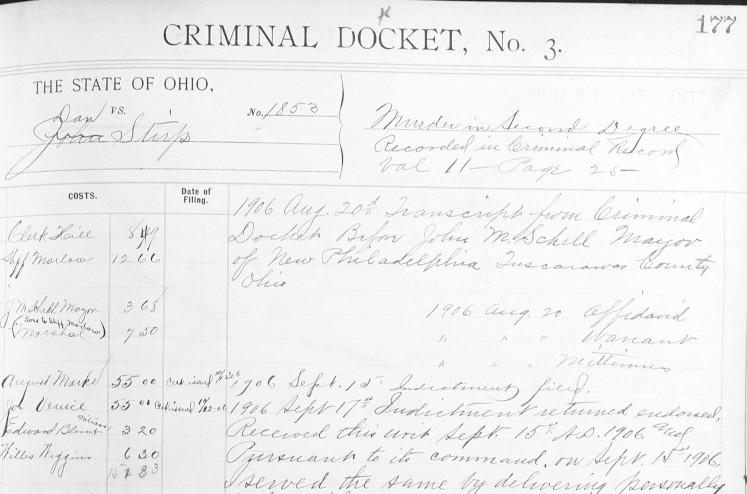 177
CRIMINAL DOCKET, No. 3.
THE STATE OF OHIO,
Dan vs.
No. 1853
John Stirp
Murder in Second Degree
Recorded in Criminal Record
Val 11 - Page 25 -
COSTS.
Date of Filing.
1906 Aug. 20th Transcript from Criminal
Clerk Hill
Docket Before John M. Schell Mayor
Shff Marlow 12 66
of New Philadelphia Tuscarawas County
Ohio
J M Schell Mayor 3 68
1906 Aug. 20 Affidavid
Marshal 7 50
" " " Warrant
" " " Mittimus
August Marks 55 00
1906 Sept. 15th Indictment filed.
55 00
1906 Sept 17th Indictment returned endorsed,
Edward Blunt 3 20
Received this writ Sept. 15th A.D. 1906 and
Willis Wiggins 6 30
Pursuant to its command, on Sept. 15th 1906,
157 83
I served the same by delivering personally